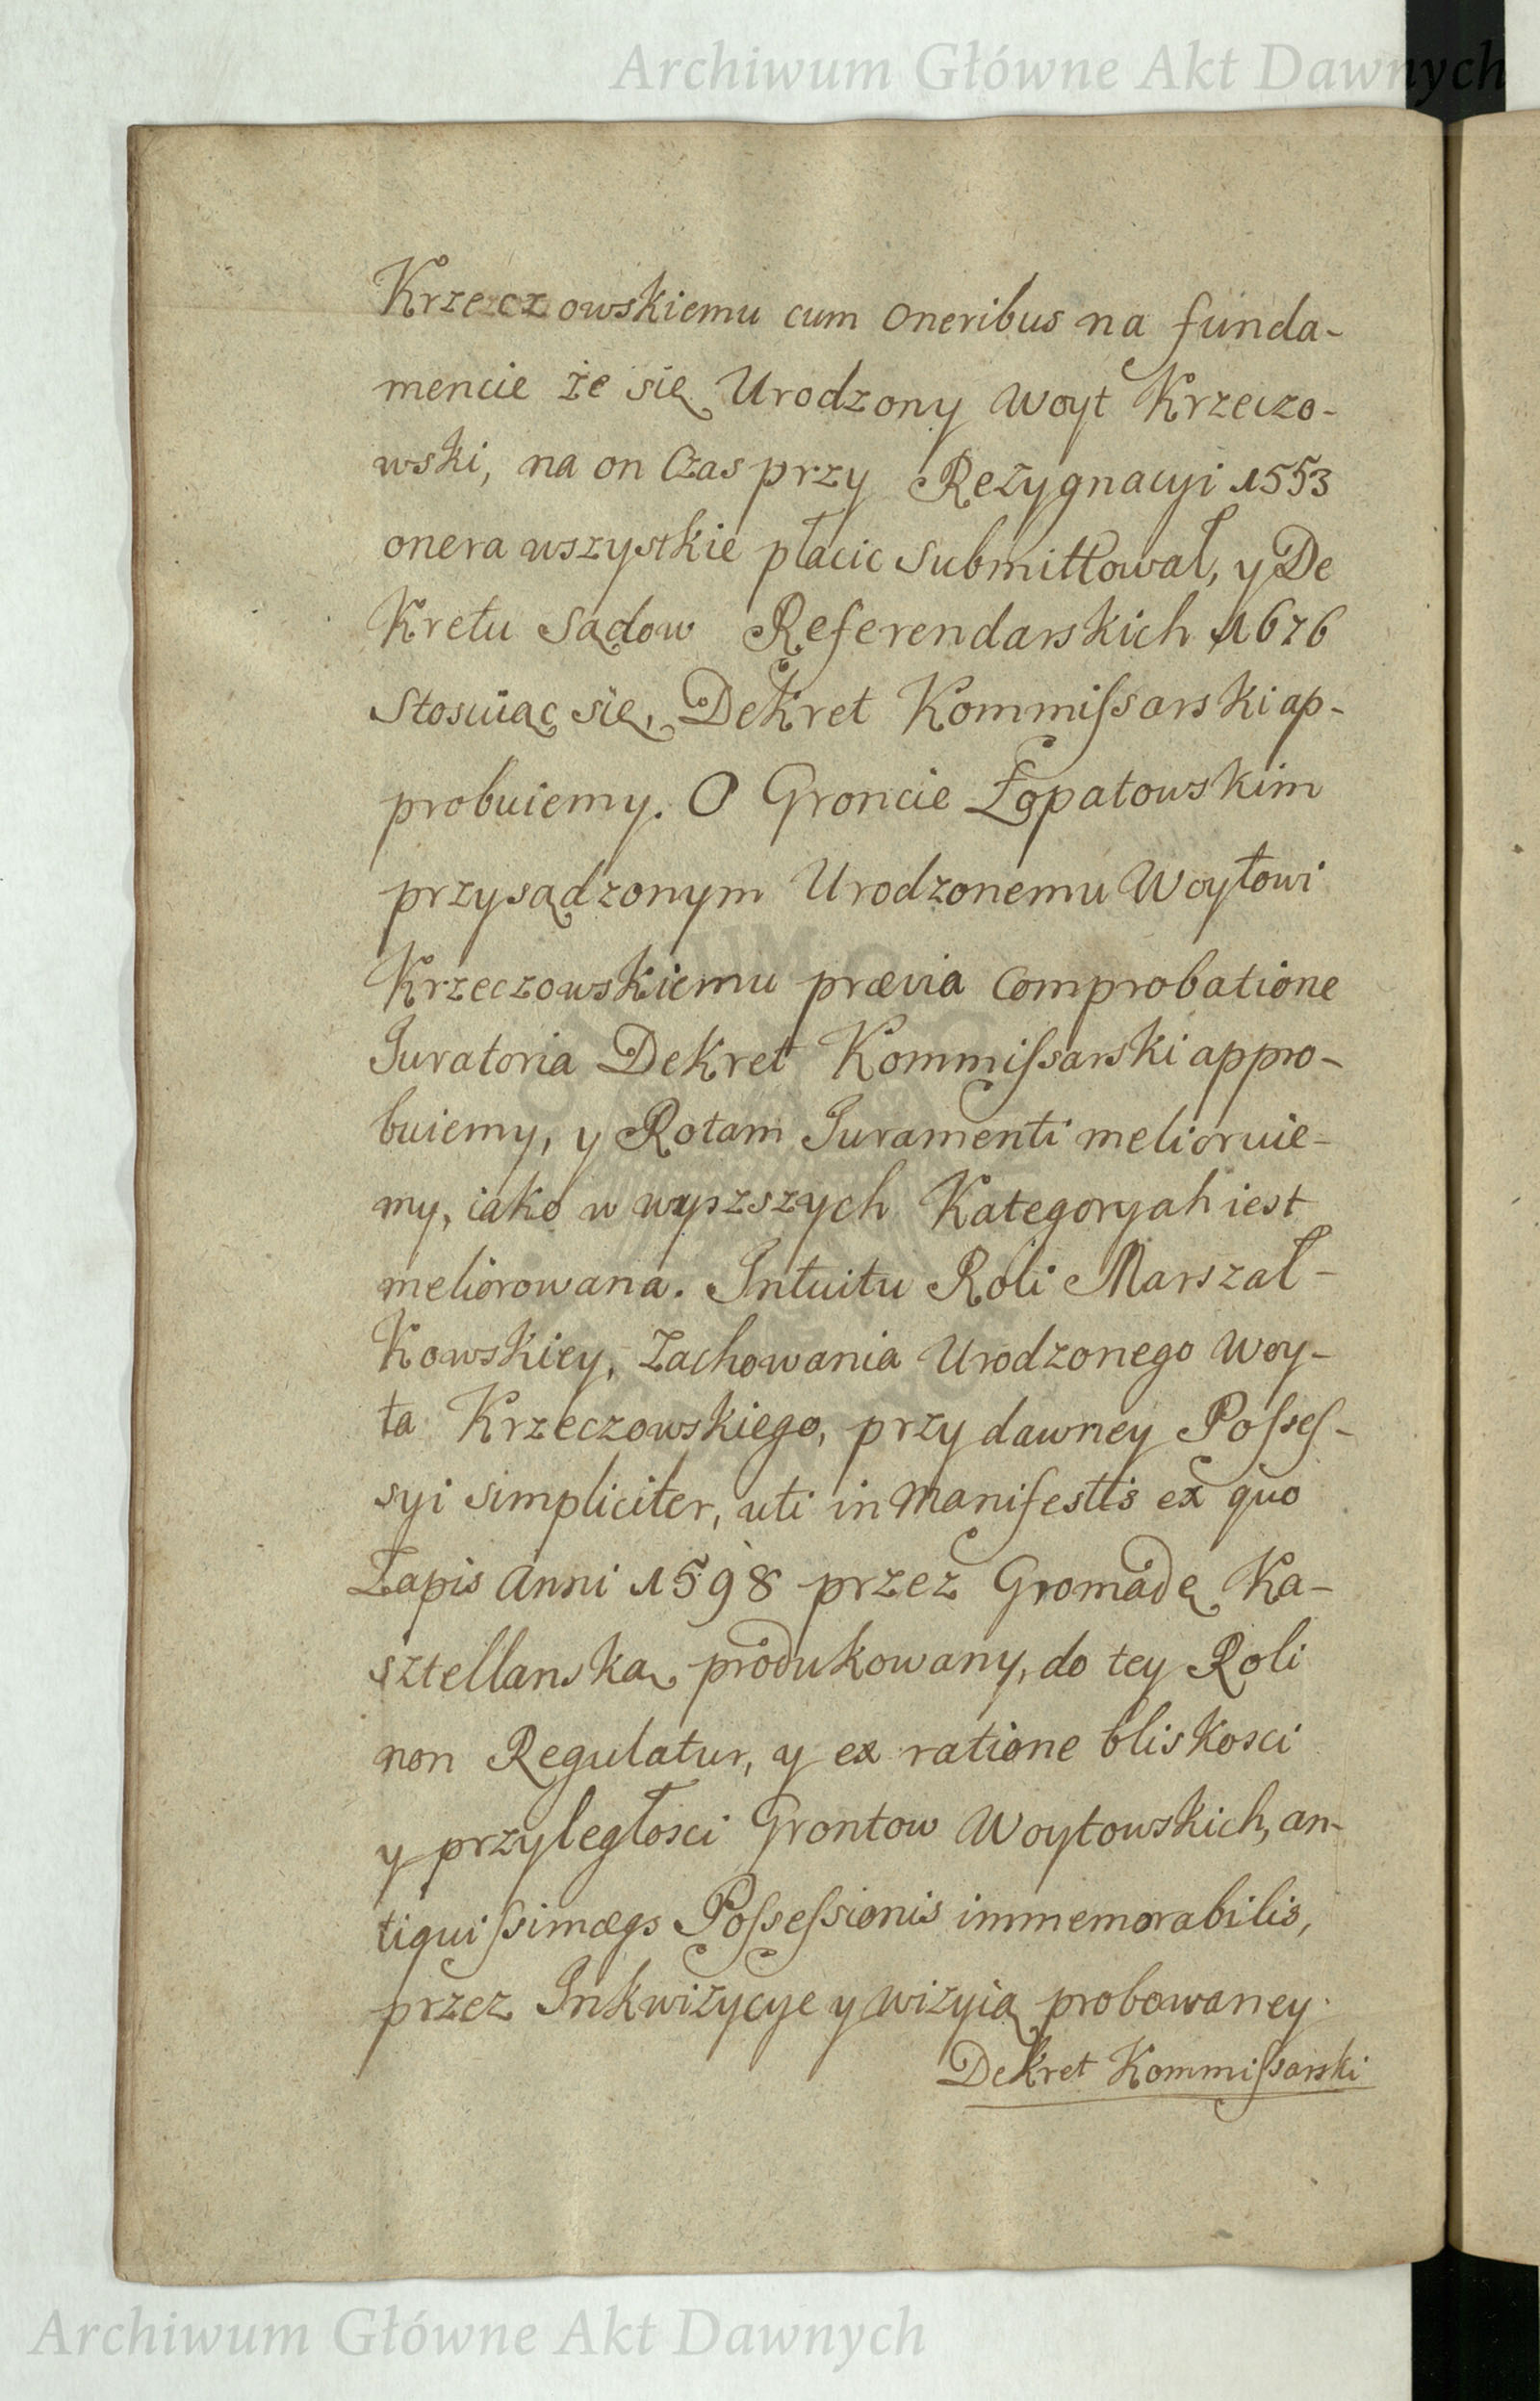 Archiwum Główne Akt Dawnych
Krzeczowskiemu cum oneribus na funda-
mencie że się Urodzony Woyt Krzeczo-
wski, na on Czas przy Reżygnacyi 1553
onera wszystkie płacic submittował, y De
Kretu Sądow Referendarskich 1676
Stosuiąc się, Dekret Kommiſsarski ap-
probuiemy. O Groncie Łopatowskim
przysądzonym Urodzonemu Woytowi
Krzeczowskiemu prævia Comprobatione
Juratoria Dekret Kommiſsarski appro-
buiemy, y Rotam Juramenti melioruie-
my, iako w wyższych Kategoryah iest
meliorowana. Intuitu Roli Marszał-
Kowskiey, Zachowania Urodzonego Woy-
ta Krzeczowskiego, przy dawney Poſseſ-
syi simpliciter, uti in Manifestis ex quo
Zapis Anni 1598 przez Gromadę Ka-
sztellanską produkowany, do tey Roli
non Regulatur, y ex ratione bliskosci
y przyległosci Grontow Woytowskich, an-
tiquiſsimæqs Poſseſsionis immemorabilis,
przez Inkwiżycye y wiżyią probowaney
Dekret Kommiſsarski
Archiwum Główne Akt Dawnych